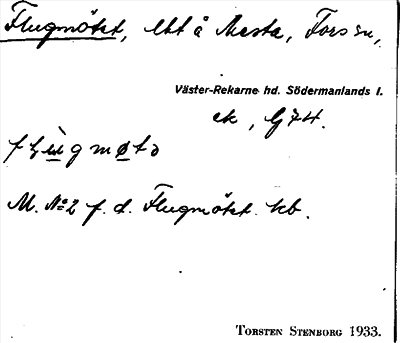 Flugmötet, lht å Mesta, Fors sn,
Väster-Rekarne hd. Södermanlands l.
ek, G74.
M. No 2 f. d. Flugmötet kb.
TORSTEN STENBORG 1933.